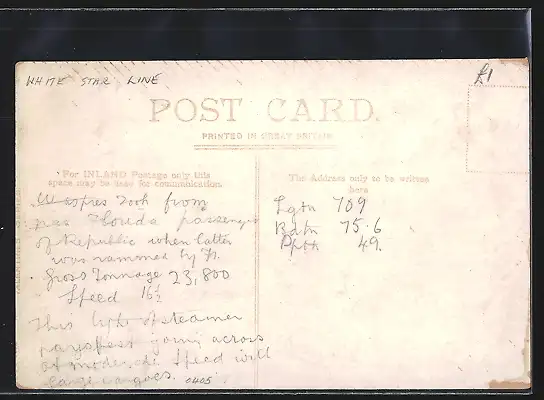 WHITE STAR LINE
£1
POST CARD.
PRINTED IN GREAT BRITAIN
For INLAND Postage only this
space may be used for communication.
The Address only to be written
here
took from
Florida passengers
of Republic when latter
was rammed by Fl.
Gross Tonnage 23,800
Speed 16½
This of steamer
going across
at moderate speed with
large cargoes. 0405
Lgth 709
Bdth 75.6
Dpth 49.